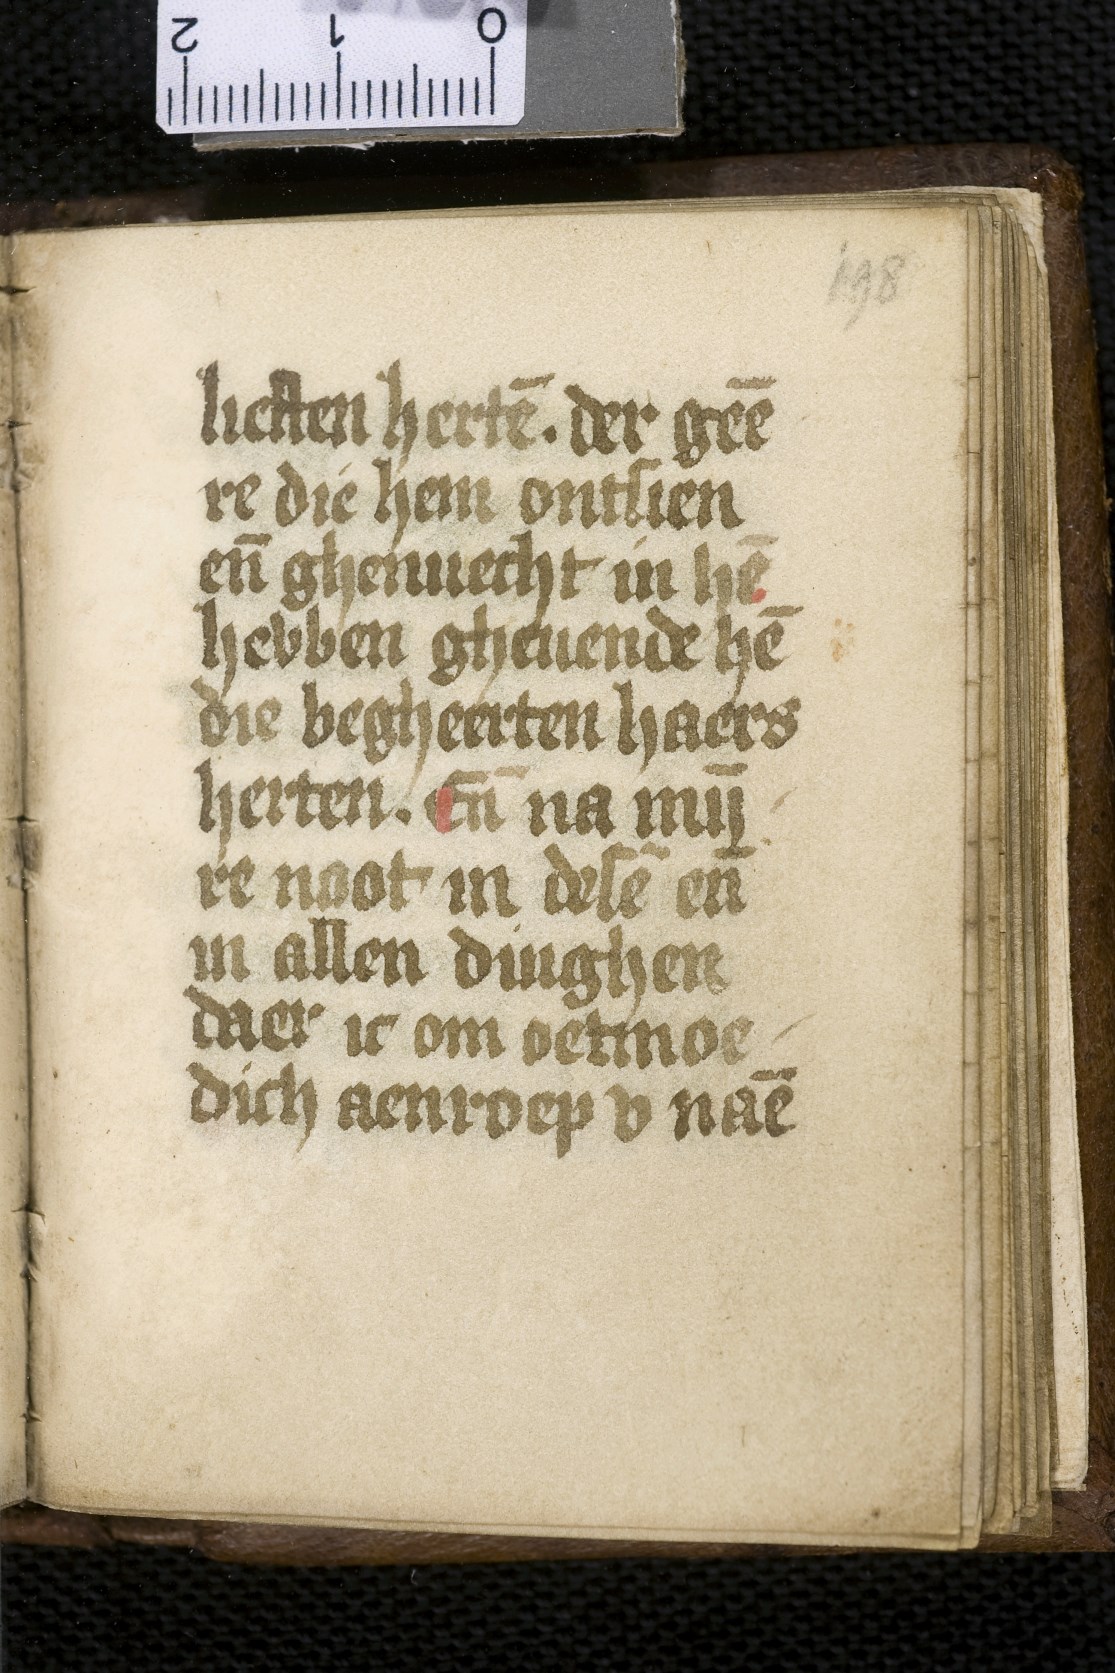 2 1 0
198
licsten hertē. der geē
re die hem ontsien
en̄ ghenuecht in hē
hebben gheuende hē
die begheerten haers
herten. En̄ na mīj
re noot in desē en̄
in allen dinghen
daer ic om oetmoe
dich aenroep v naē